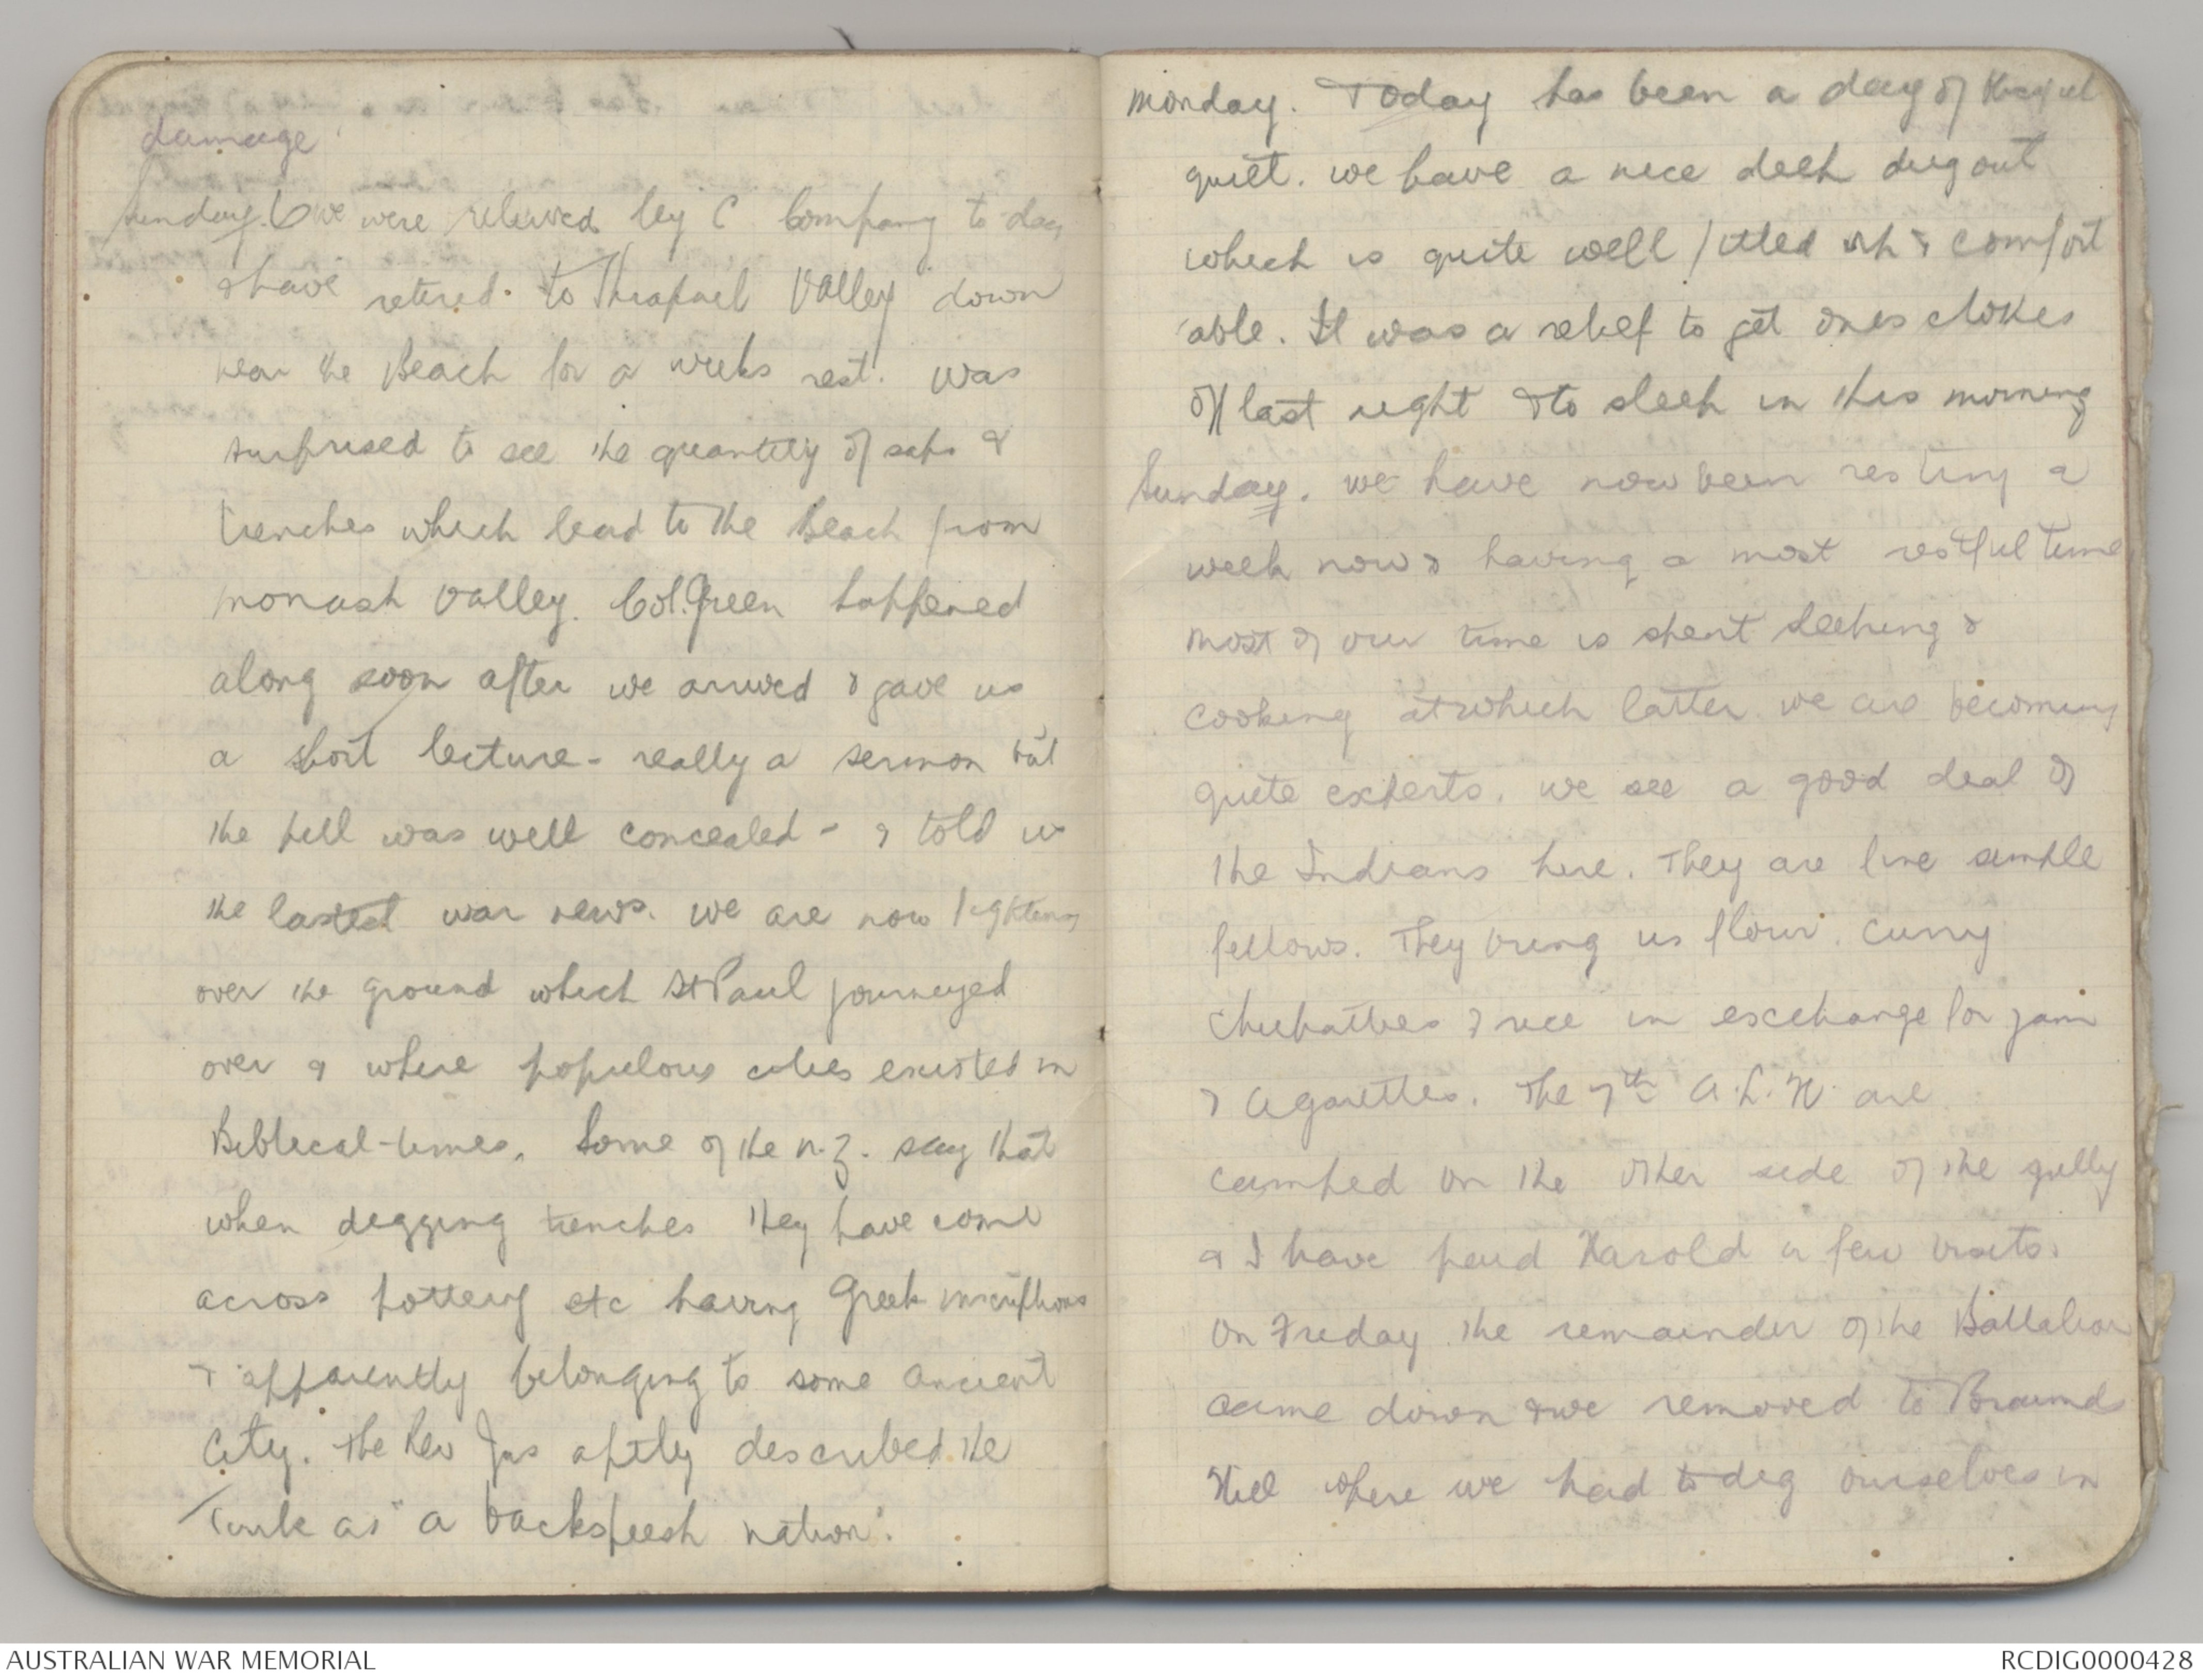 damage.
Sunday. We were relieved by C Company to day
& have retired to Shrapnel Valley down
near the Beach for a weeks rest. Was
surprised to see the quantity of saps &
trenches which lead to the Beach from
Monash Valley. Col. Green happened
along soon after we arrived & gave us
a short lecture - really a sermon but
the pill was well concealed - & told us
the lastest war news. We are now fighting
over the ground which St Paul journeyed
over & where populous cities existed in
Biblical-times. Some of the N.Z. say that
when digging trenches they have come
across pottery etc having Greek inscriptions
& apparently belonging to some ancient
City. The Rev Jas aptly described the
Turk as "a backsheesh nation".
Monday. Today has been a day of
quiet. We have a nice deep dug out
which is quite well fitted up & comfort
able. It was a relief to get ones clothes
off last night & to sleep in this morning
Sunday. We have now been resting a
week now & having a most restful time
Most of our time is spent sleeping &
cooking at which latter we are becoming
quite experts. We see a good deal of
the Indians here. They are fine simple
fellows. They bring us flour. Curry
Chupatties & rice in exchange for jam
& Cigarettes. The 7th A.L.H. are
camped on the other side of the gully
& I have paid Harold a few visits.
On Friday the remainder of the Battalion
came down & we removed to Braunds
Hill where we had to dig ourselves in
AUSTRALIAN WAR MEMORIAL
RCDIG0000428